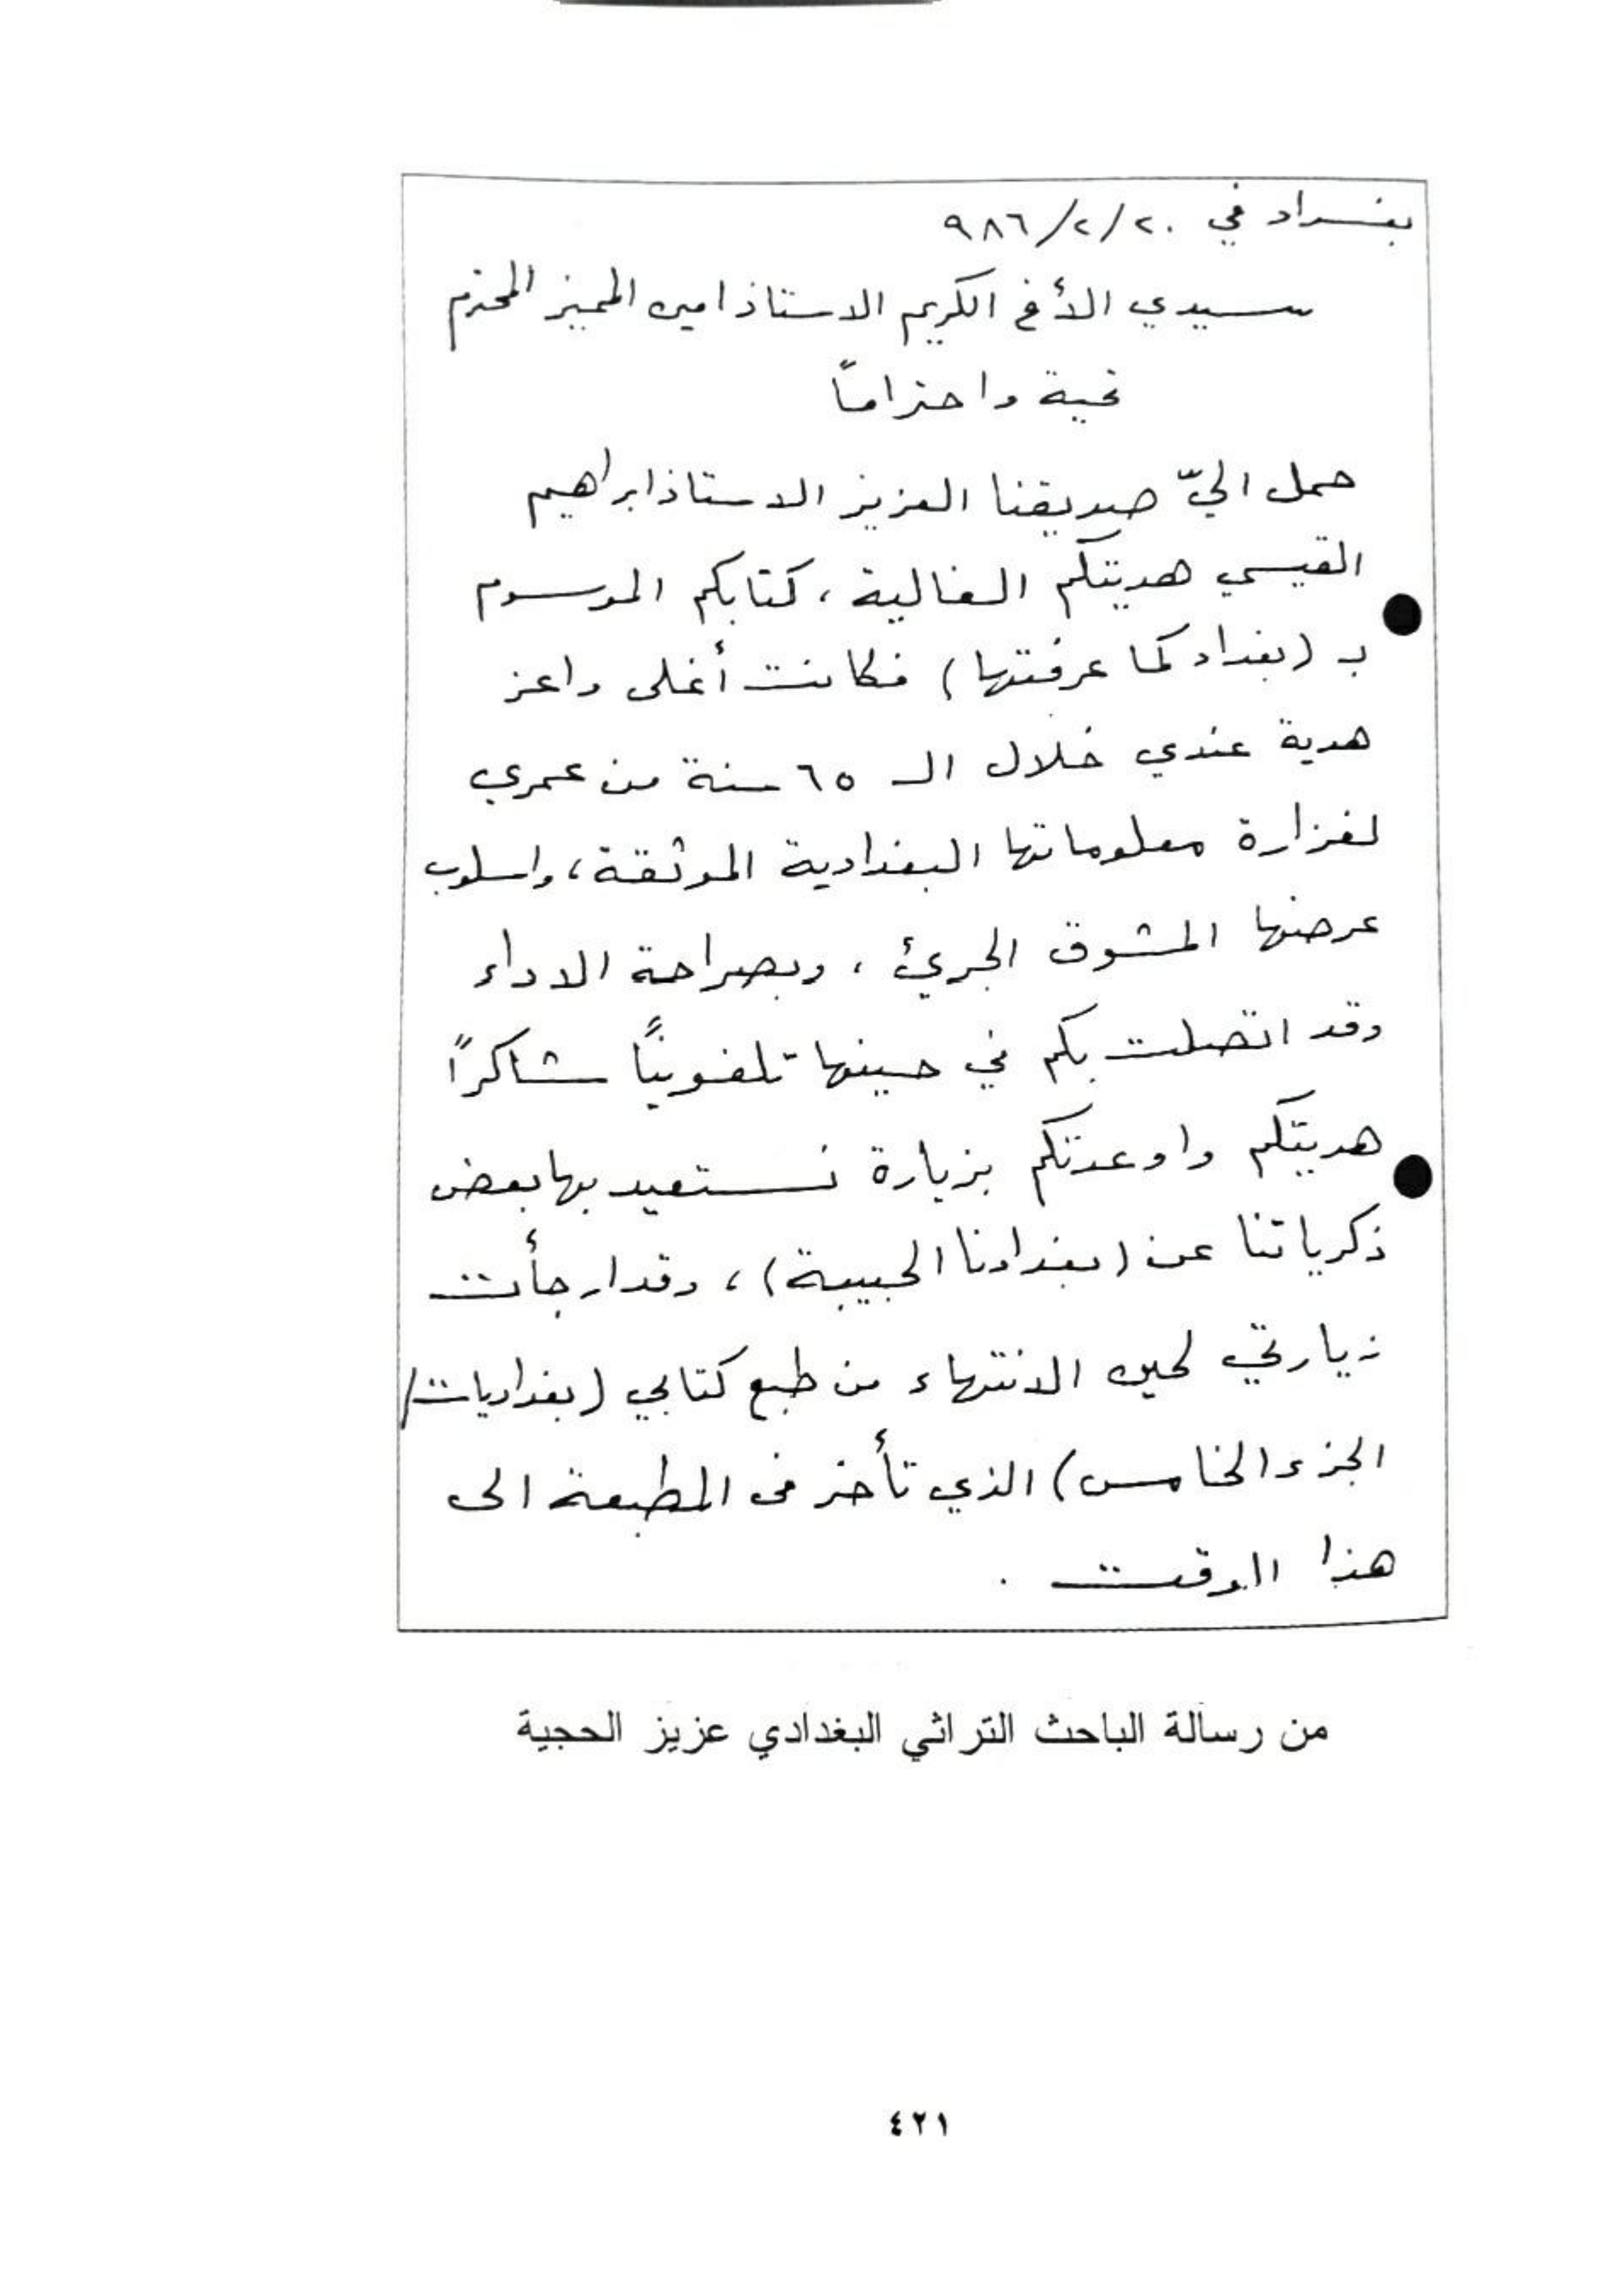 بغداد في ٢٠/٢/٩٨٦
سيدي الأخ الكريم الاستاذ امين المميز المحترم
تحية واحتراماً
حمل اليّ صديقنا العزيز الاستاذ ابراهيم
القيسي هديتكم الغالية، كتابكم الموسوم
بـ (بغداد كما عرفتها) فكانت أغلى واعز
هدية عندي خلال الـ ٦٥ سنة من عمري
لغزارة معلوماتها البغدادية الموثقة، واسلوب
عرضها المشوق الجريئ، وبصراحة الاداء
وقد اتصلت بكم في حينها تلفونياً شاكراً
هديتكم واوعدتكم بزيارة نستعيد بها بعض
ذكرياتنا عن (بغدادنا الحبيبة)، وقد ارجأت
زيارتي لحين الانتهاء من طبع كتابي (بغداديات/
الجزء الخامس) الذي تأخر في المطبعة الى
هذا الوقت .
من رسالة الباحث التراثي البغدادي عزيز الحجية
٤٢١